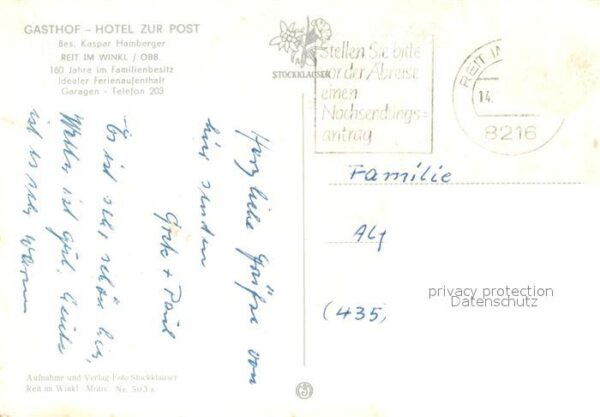 GASTHOF - HOTEL ZUR POST
Bes. Kaspar Hamberger
REIT IM WINKL / OBB.
160 Jahre im Familienbesitz
Idealer Ferienaufenthalt
Garagen - Telefon 203
STOCKKLAUSER
Stellen Sie bitte
vor der Abreise
einen
Nachsendungs=
antrag
REIT IM
14.
8216
Herzliche Grüße von
hier senden
Grete + Paul
Es ist sehr schön hier,
Wetter ist gut, heute
ist es sehr warm
Familie
Alf
(435)
privacy protection
Datenschutz
Aufnahme und Verlag Foto Stockklauser
Reit im Winkl · Motiv. Nr. 503 a